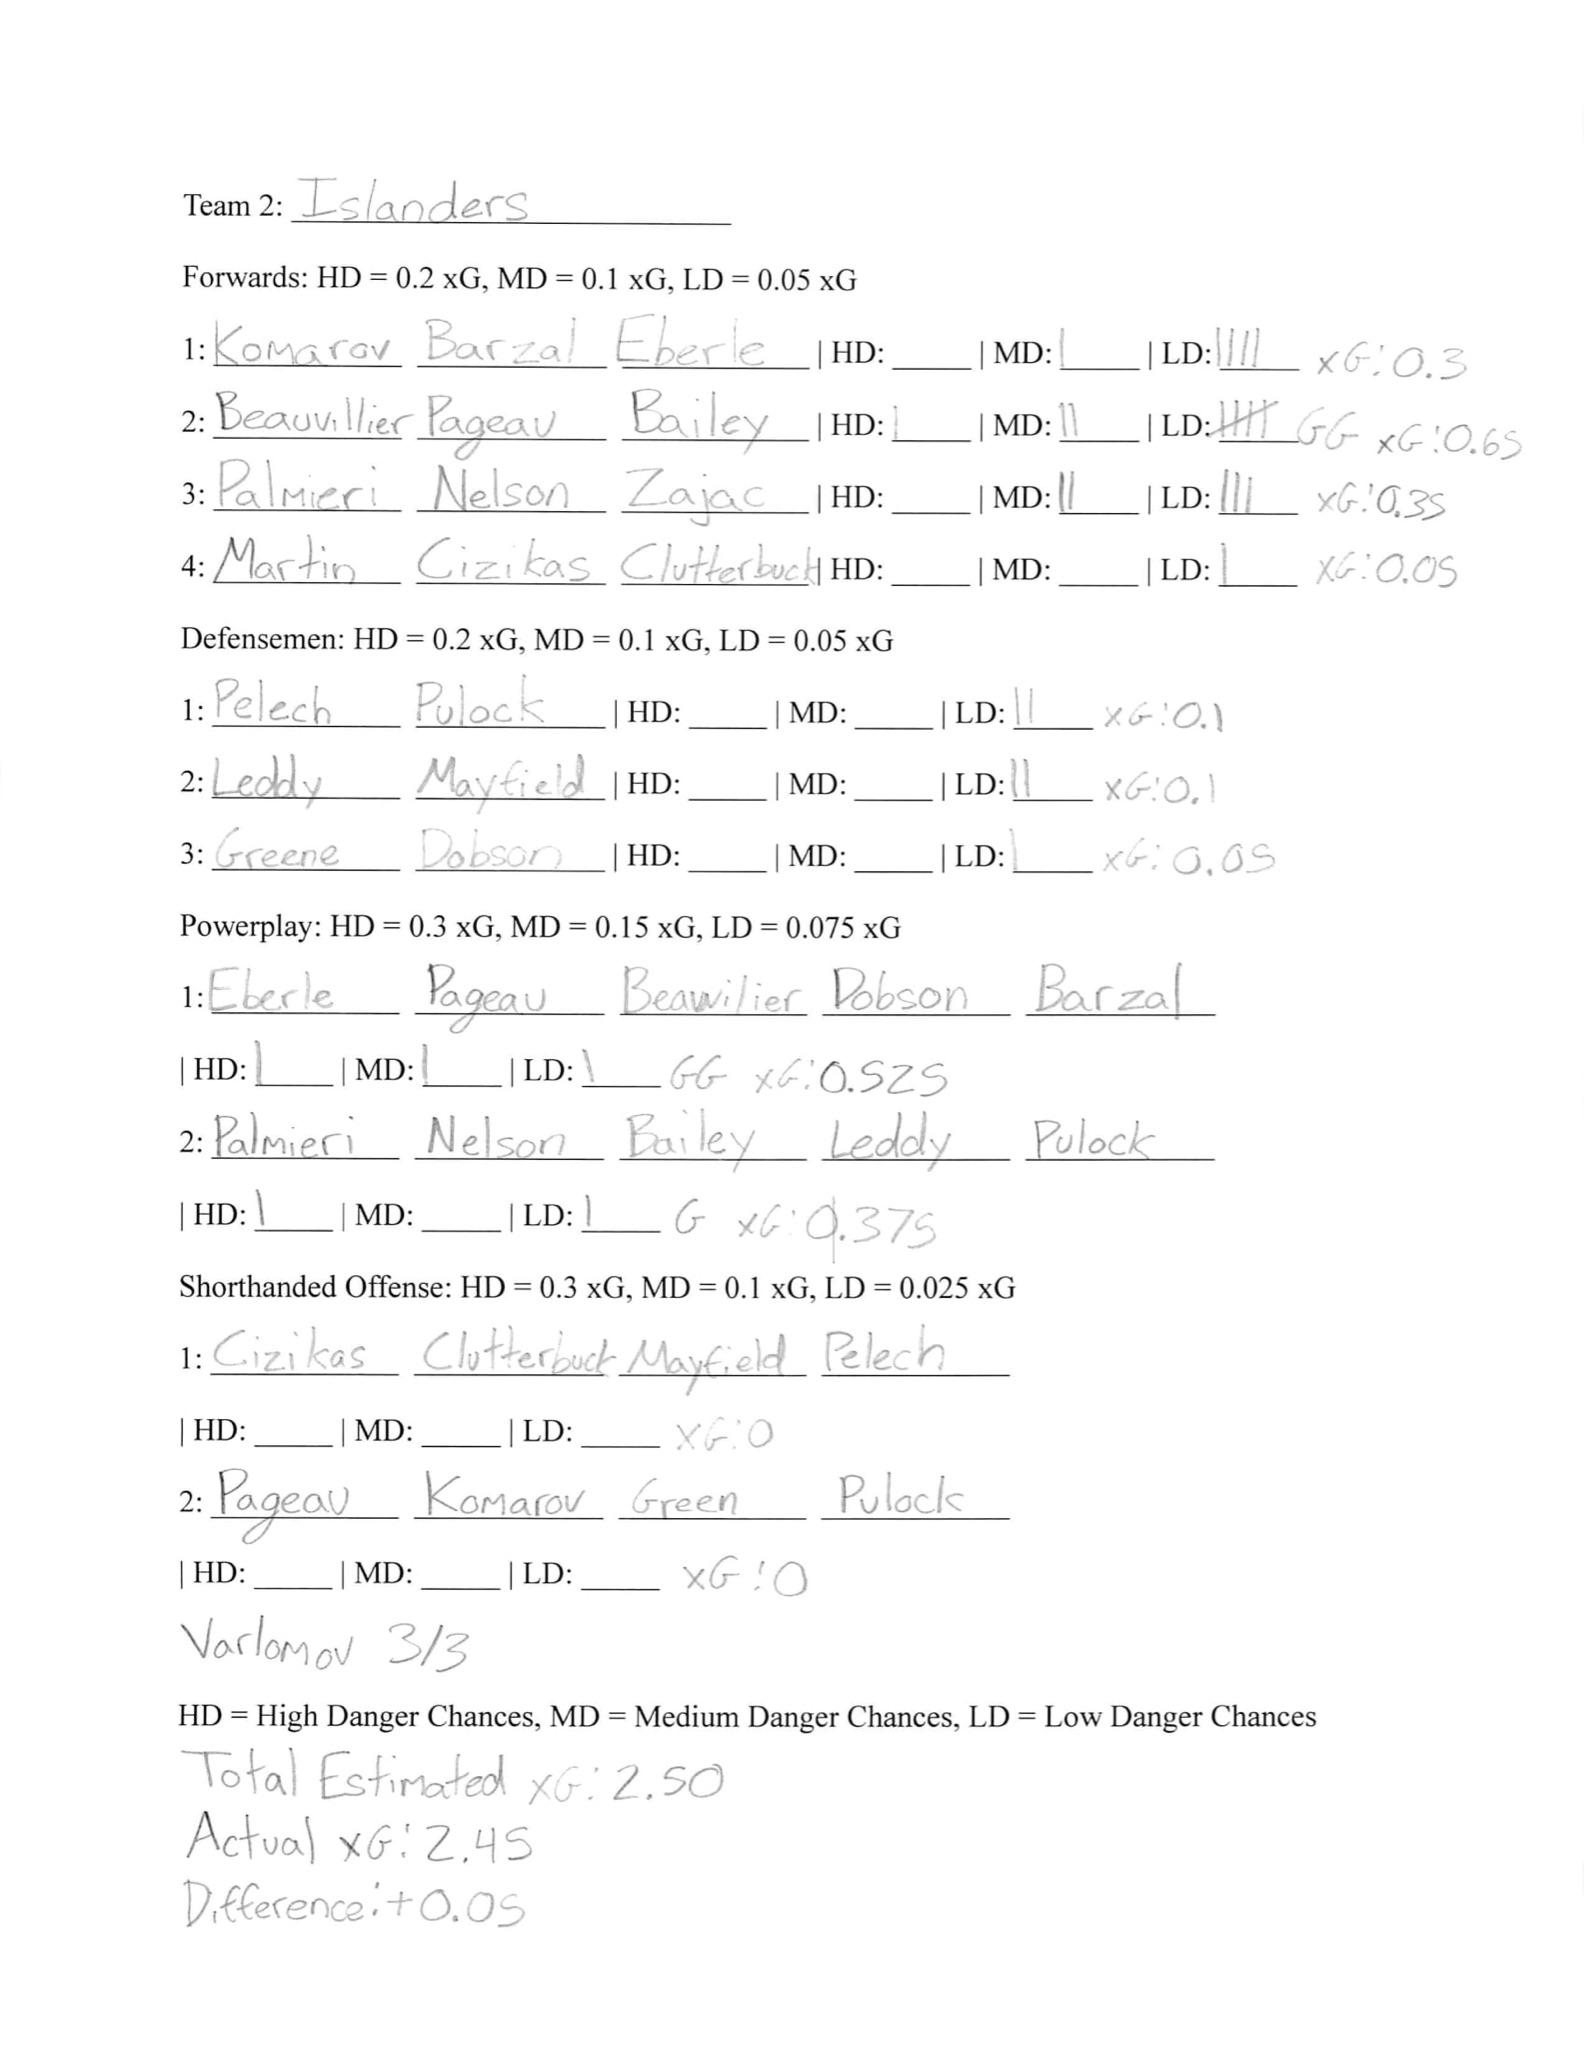 Team 2: Islanders
Forwards: HD = 0.2 xG, MD = 0.1 xG, LD = 0.05 xG
1: Komarov Barzal Eberle | HD: ____ | MD: | | LD: |||| xG: 0.3
2: Beauvillier Pageau Bailey | HD: | | MD: || | LD: |||| GG xG: 0.65
3: Palmieri Nelson Zajac | HD: ____ | MD: || | LD: ||| xG: 0.35
4: Martin Cizikas Clutterbuck | HD: ____ | MD: ____ | LD: | xG: 0.05
Defensemen: HD = 0.2 xG, MD = 0.1 xG, LD = 0.05 xG
1: Pelech Pulock | HD: ____ | MD: ____ | LD: || xG: 0.1
2: Leddy Mayfield | HD: ____ | MD: ____ | LD: || xG: 0.1
3: Greene Dobson | HD: ____ | MD: ____ | LD: | xG: 0.05
Powerplay: HD = 0.3 xG, MD = 0.15 xG, LD = 0.075 xG
1: Eberle Pageau Beauvilier Dobson Barzal
| HD: | | MD: | | LD: | GG xG: 0.525
2: Palmieri Nelson Bailey Leddy Pulock
| HD: | | MD: ____ | LD: | G xG: 0.375
Shorthanded Offense: HD = 0.3 xG, MD = 0.1 xG, LD = 0.025 xG
1: Cizikas Clutterbuck Mayfield Pelech
| HD: ____ | MD: ____ | LD: ____ xG: 0
2: Pageau Komarov Green Pulock
| HD: ____ | MD: ____ | LD: ____ xG: 0
Varlomov 3/3
HD = High Danger Chances, MD = Medium Danger Chances, LD = Low Danger Chances
Total Estimated xG: 2.50
Actual xG: 2.45
Difference: +0.05